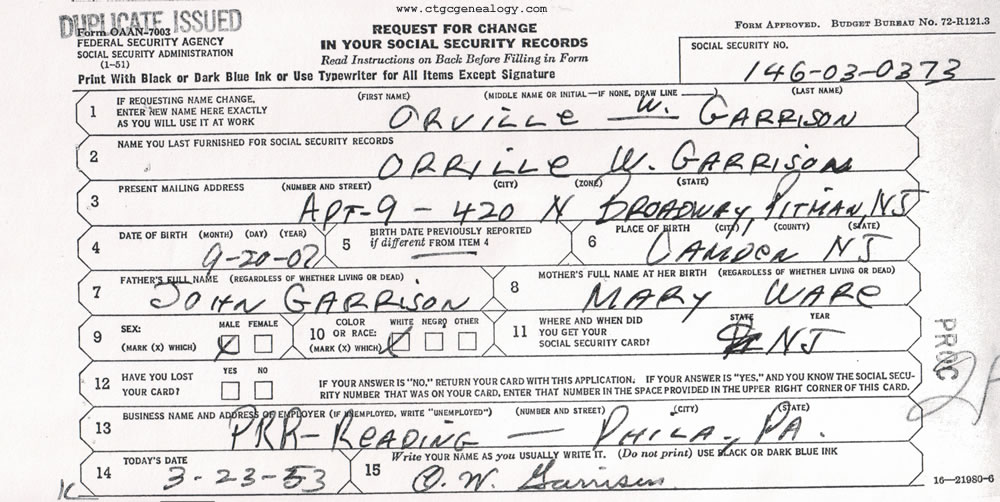 www.ctgcgenealogy.com
DUPLICATE ISSUED
Form OAAN-7003
FEDERAL SECURITY AGENCY
SOCIAL SECURITY ADMINISTRATION
(1-51)
REQUEST FOR CHANGE
IN YOUR SOCIAL SECURITY RECORDS
Read Instructions on Back Before Filling in Form
Print With Black or Dark Blue Ink or Use Typewriter for All Items Except Signature
FORM APPROVED. BUDGET BUREAU NO. 72-R121.3
SOCIAL SECURITY NO.
146-03-0373
1 IF REQUESTING NAME CHANGE, ENTER NEW NAME HERE EXACTLY AS YOU WILL USE IT AT WORK
(FIRST NAME) (MIDDLE NAME OR INITIAL—IF NONE, DRAW LINE) (LAST NAME)
ORVILLE W. GARRISON
2 NAME YOU LAST FURNISHED FOR SOCIAL SECURITY RECORDS
ORRILLE W. GARRISON
3 PRESENT MAILING ADDRESS (NUMBER AND STREET) (CITY) (ZONE) (STATE)
APT-9 - 420 N BROADWAY, PITMAN, NJ
4 DATE OF BIRTH (MONTH) (DAY) (YEAR)
9-20-07
5 BIRTH DATE PREVIOUSLY REPORTED if different FROM ITEM 4
6 PLACE OF BIRTH (CITY) (COUNTY) (STATE)
CAMDEN NJ
7 FATHER'S FULL NAME (REGARDLESS OF WHETHER LIVING OR DEAD)
JOHN GARRISON
8 MOTHER'S FULL NAME AT HER BIRTH (REGARDLESS OF WHETHER LIVING OR DEAD)
MARY WARE
9 SEX: MALE FEMALE
(MARK (X) WHICH) X
10 COLOR OR RACE: WHITE NEGRO OTHER
(MARK (X) WHICH) X
11 WHERE AND WHEN DID YOU GET YOUR SOCIAL SECURITY CARD? STATE YEAR
NJ
12 HAVE YOU LOST YOUR CARD? YES NO
IF YOUR ANSWER IS "NO," RETURN YOUR CARD WITH THIS APPLICATION. IF YOUR ANSWER IS "YES," AND YOU KNOW THE SOCIAL SECU-
RITY NUMBER THAT WAS ON YOUR CARD, ENTER THAT NUMBER IN THE SPACE PROVIDED IN THE UPPER RIGHT CORNER OF THIS CARD.
PROC
13 BUSINESS NAME AND ADDRESS OF EMPLOYER (IF UNEMPLOYED, WRITE "UNEMPLOYED") (NUMBER AND STREET) (CITY) (STATE)
PRR-READING — PHILA, PA.
14 TODAY'S DATE
3-23-53
15 Write YOUR NAME AS you USUALLY WRITE IT. (Do not print) USE BLACK OR DARK BLUE INK
O. W. Garrison
16—21980-6